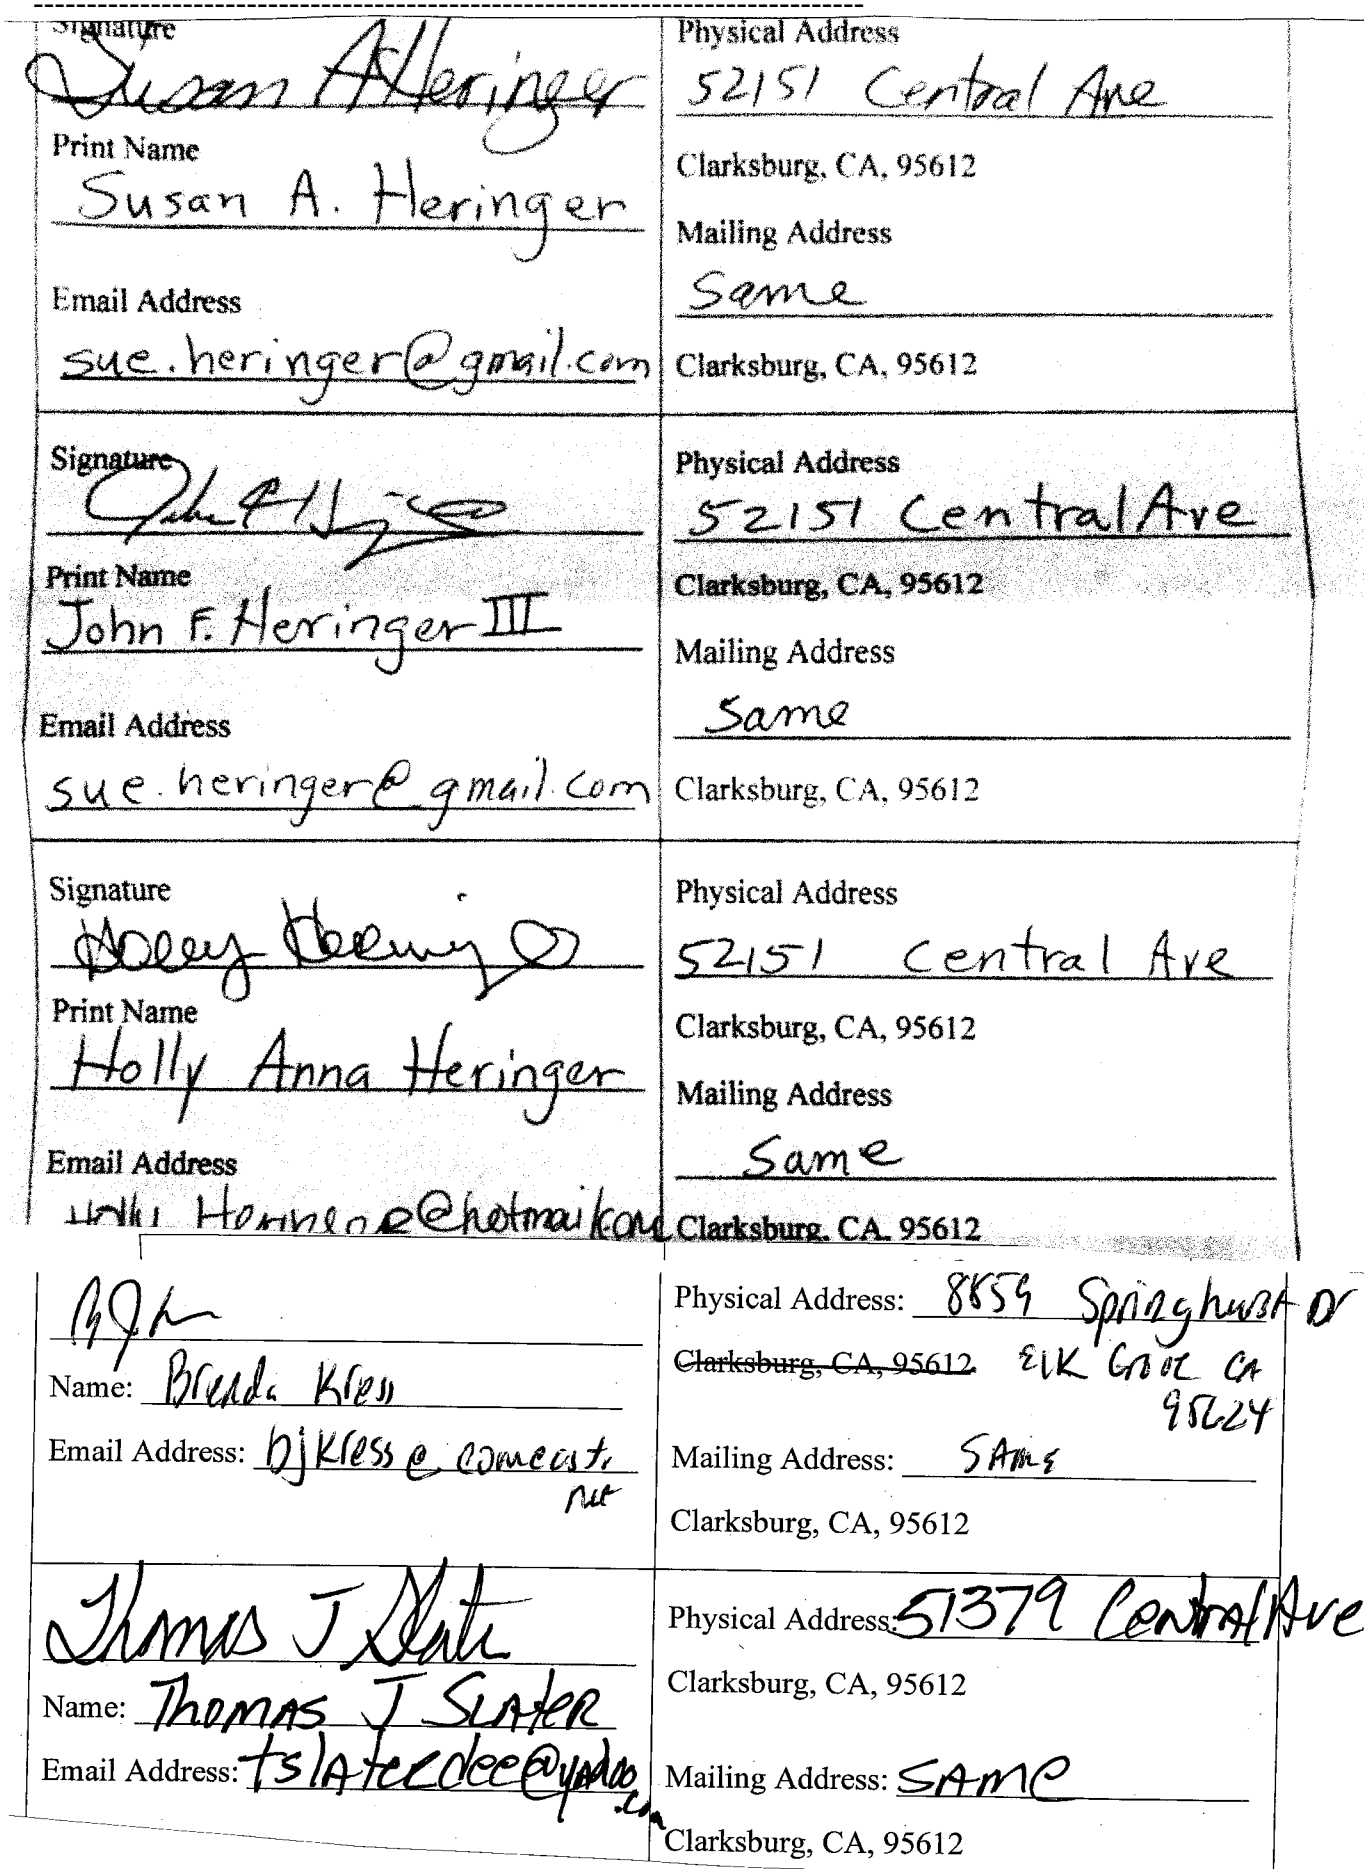 Signature
Susan A Heringer
Print Name
Susan A. Heringer
Email Address
sue.heringer@gmail.com
Physical Address
52151 Central Ave
Clarksburg, CA, 95612
Mailing Address
Same
Clarksburg, CA, 95612
Signature
Print Name
John F. Heringer III
Email Address
sue.heringer@gmail.com
Physical Address
52151 Central Ave
Clarksburg, CA, 95612
Mailing Address
Same
Clarksburg, CA, 95612
Signature
Holly Heringer
Print Name
Holly Anna Heringer
Email Address
@hotmail.com
Physical Address
52151 Central Ave
Clarksburg, CA, 95612
Mailing Address
Same
Clarksburg, CA, 95612
Name: Brenda Kress
Email Address: bjkress@comcast.
net
Physical Address: 8859 Springhurst Dr
Clarksburg, CA, 95612 Elk Grove CA
95624
Mailing Address: SAME
Clarksburg, CA, 95612
Thomas J Slater
Name: Thomas J Slater
Email Address: tslaterdee@yahoo
.com
Physical Address: 51379 Central Ave
Clarksburg, CA, 95612
Mailing Address: SAME
Clarksburg, CA, 95612